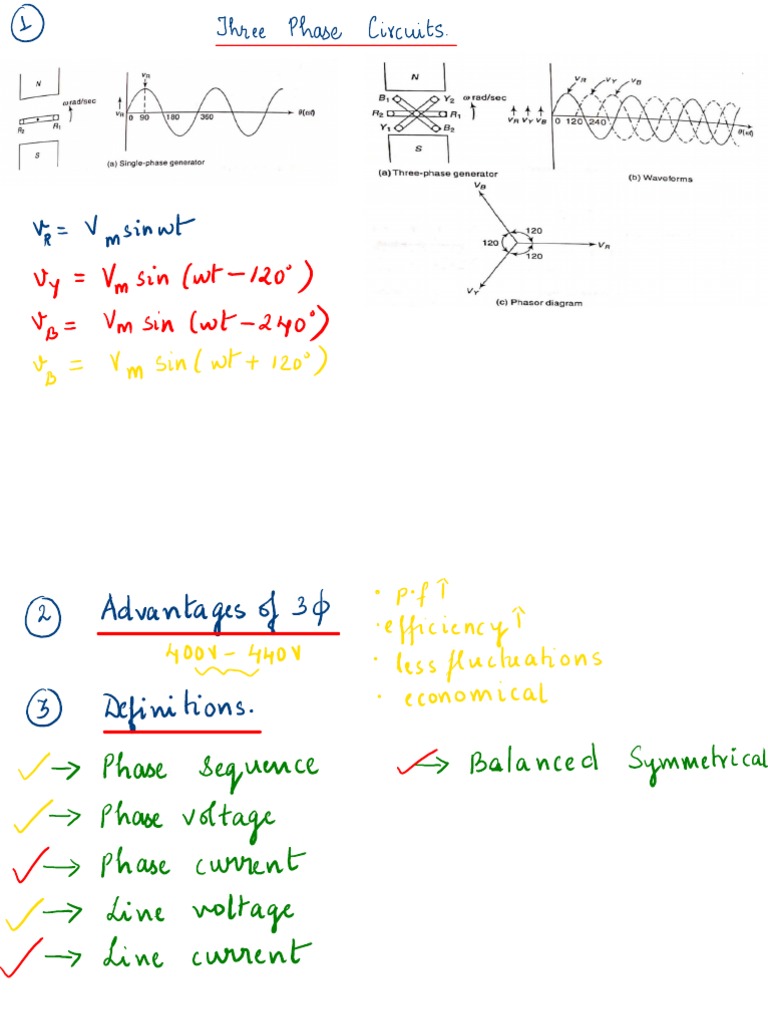 1
Three Phase Circuits.
N
ω rad/sec
R2 R1
S
VR
VR
0 90 180 360 θ(ωt)
(a) Single-phase generator
N
B1 Y2 ω rad/sec
R2 R1
Y1 B2
S
(a) Three-phase generator
VR VY VB
VR VY VB
0 120 240 θ(ωt)
(b) Waveforms
VB
120
120 VR
120
VY
(c) Phasor diagram
vR = Vm sin wt
vY = Vm sin (wt - 120°)
vB = Vm sin (wt - 240°)
vB = Vm sin (wt + 120°)
2 Advantages of 3ϕ
400V - 440V
• p.f ↑
• efficiency ↑
• less fluctuations
• economical
3 Definitions.
✓ → Phase sequence
✓ → Phase voltage
✓ → Phase current
✓ → Line voltage
✓ → Line current
✓ → Balanced Symmetrical